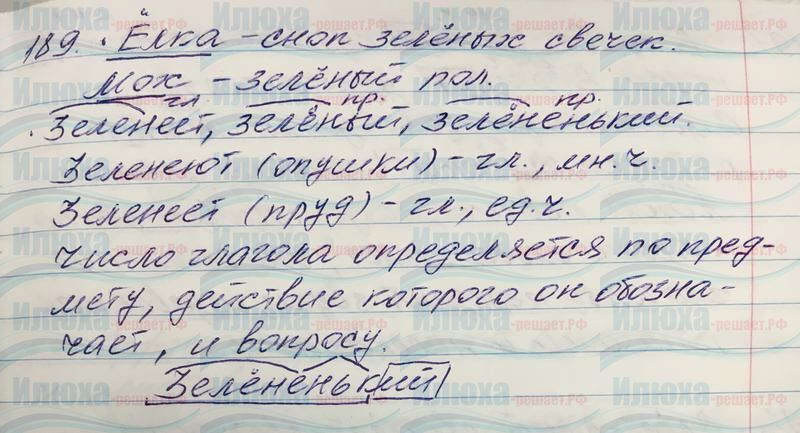 189. · Ёлка – сноп зелёных свечек.
Мох – зелёный пол.
гл. пр. пр.
· Зеленеет, зелёный, зелёненький.
Зеленеют (опушки) – гл., мн.ч.
Зеленеет (пруд) – гл., ед.ч.
Число глагола определяется по пред-
мету, действие которого он обозна-
чает, и вопросу.
Зелёненький